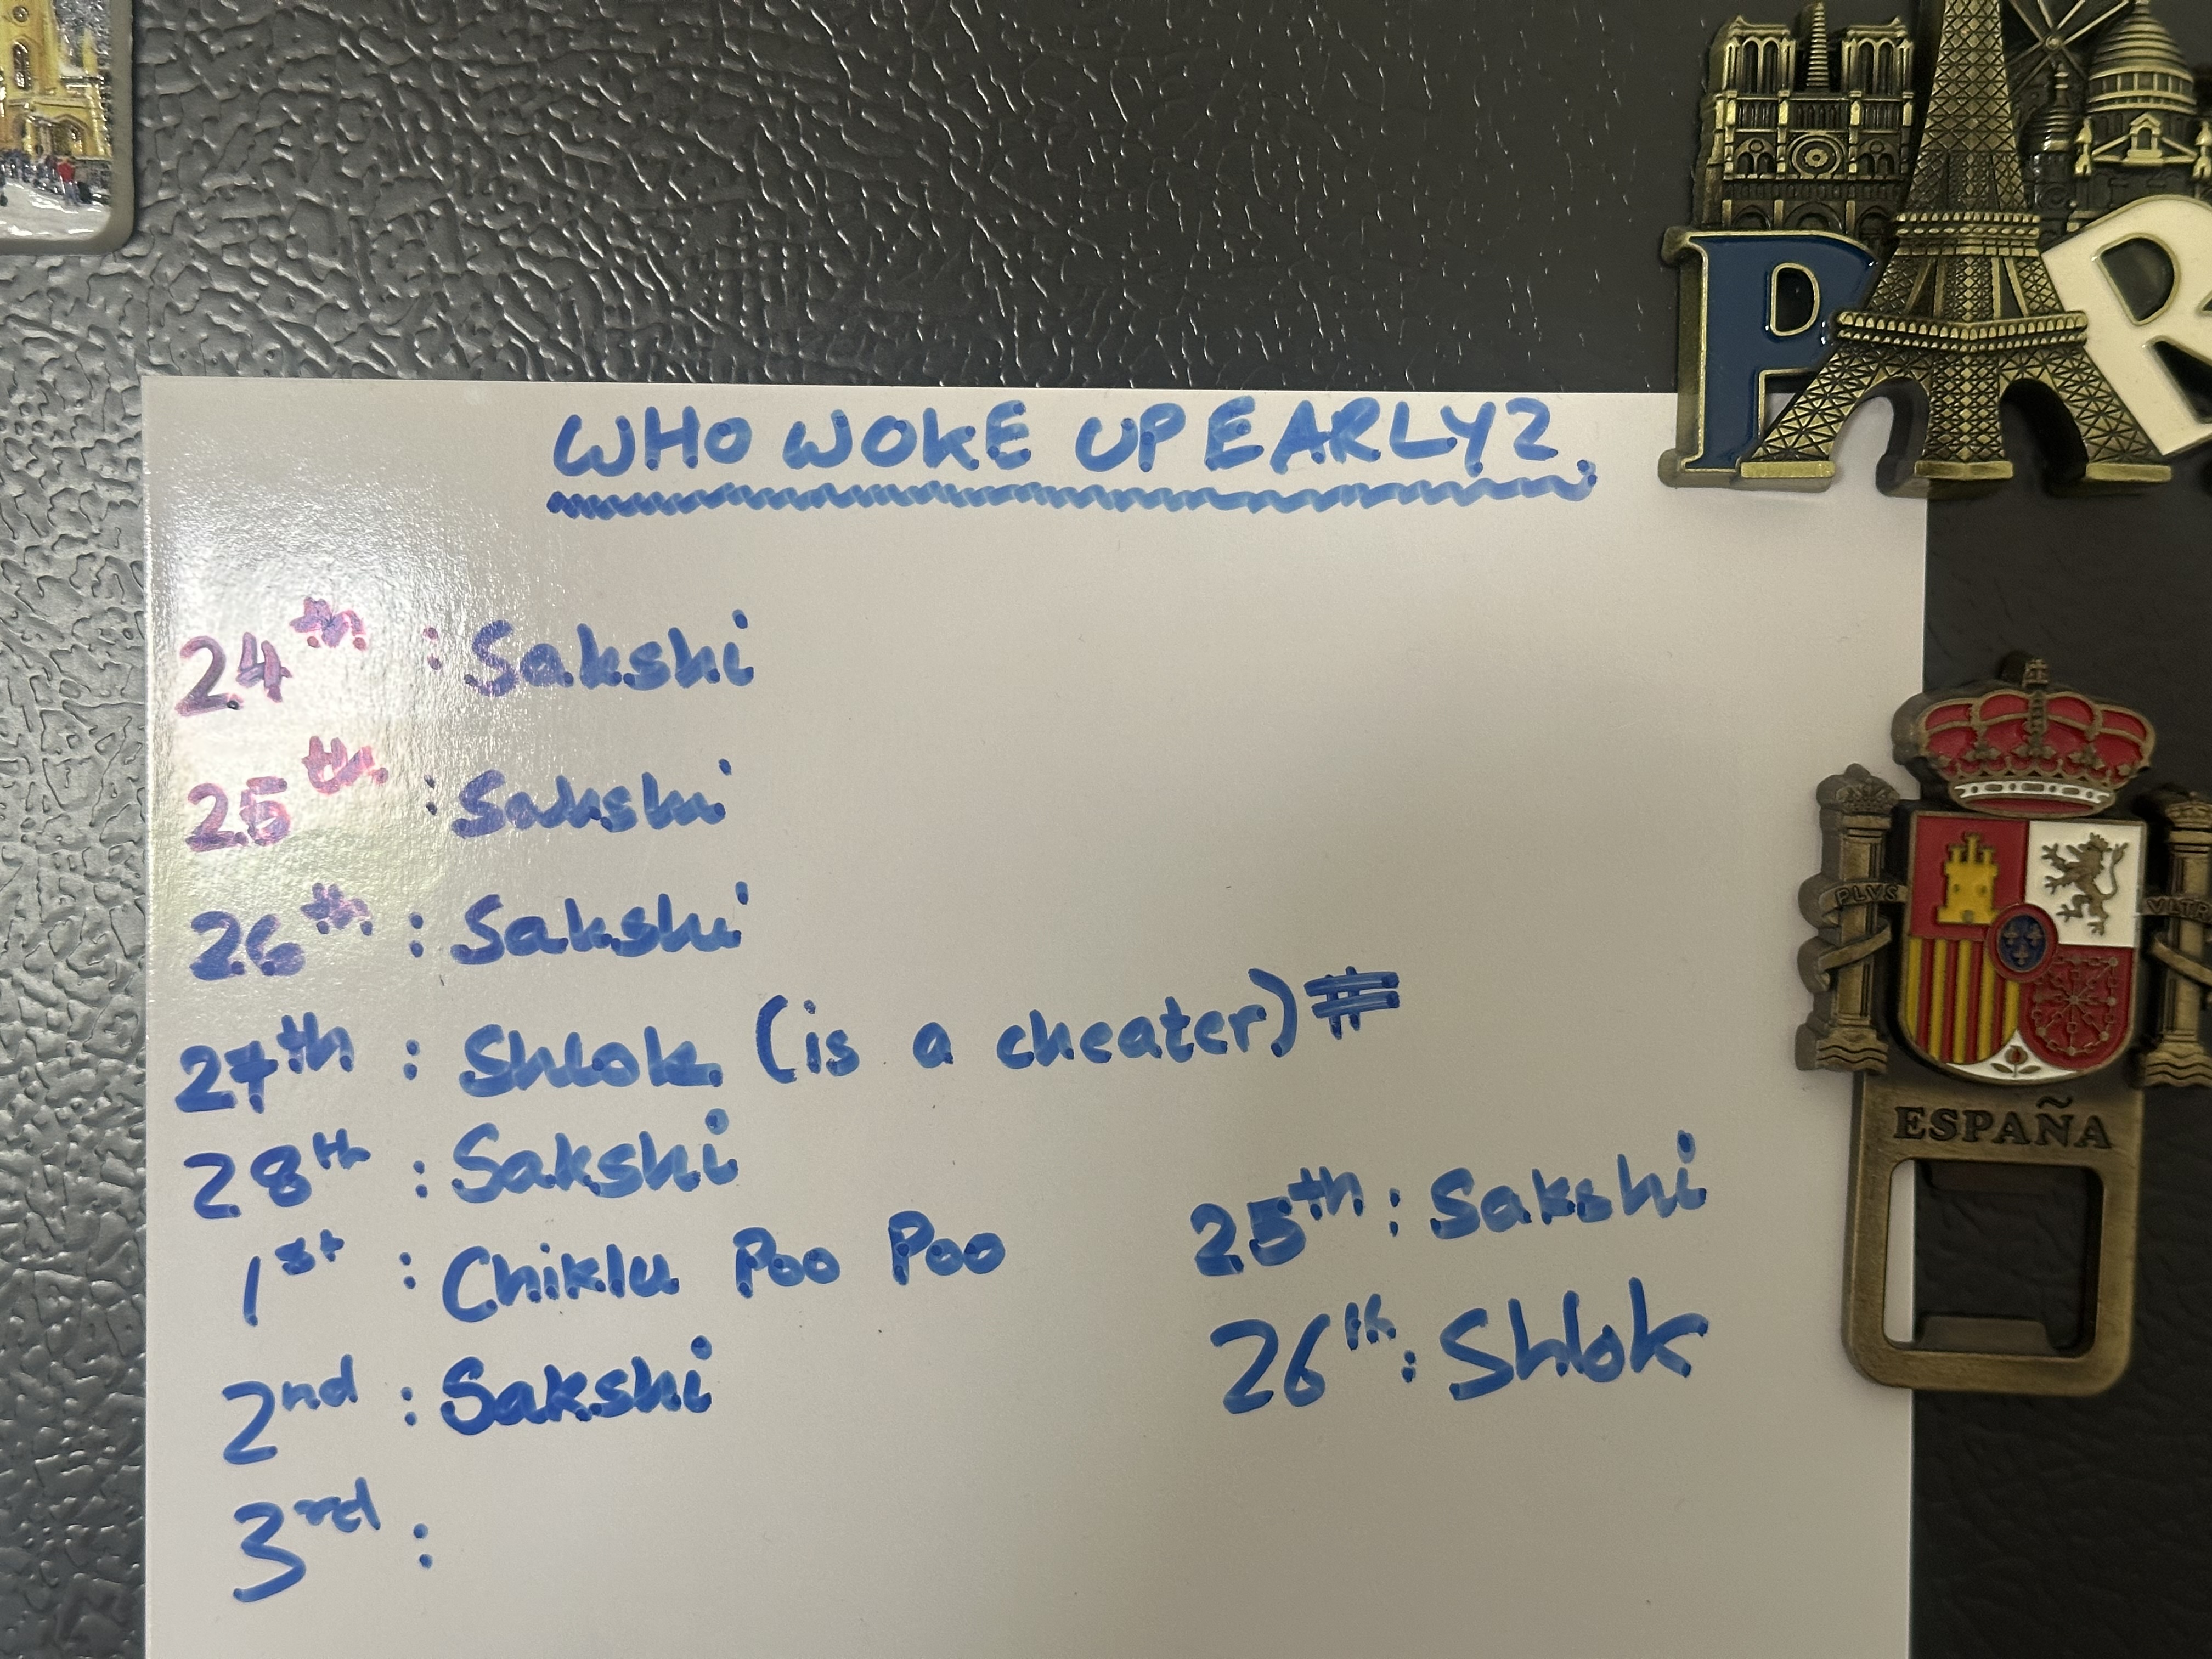 WHO WOKE UP EARLY?
24th : Sakshi
25th : Sakshi
26th : Sakshi
27th : Shlok (is a cheater) #
28th : Sakshi
1st : Chiklu Poo Poo
2nd : Sakshi
3rd :
25th : Sakshi
26th : Shlok
PAR
PLVS
VLTR
ESPAÑA